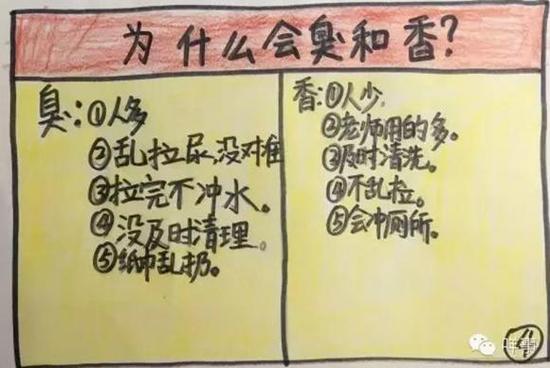 为什么会臭和香?
臭:①人多
②乱拉尿没对准
③拉完不冲水。
④没及时清理。
⑤纸巾乱扔。
香:①人少
②老师用的多。
③及时清洗。
④不乱拉。
⑤会冲厕所。
④